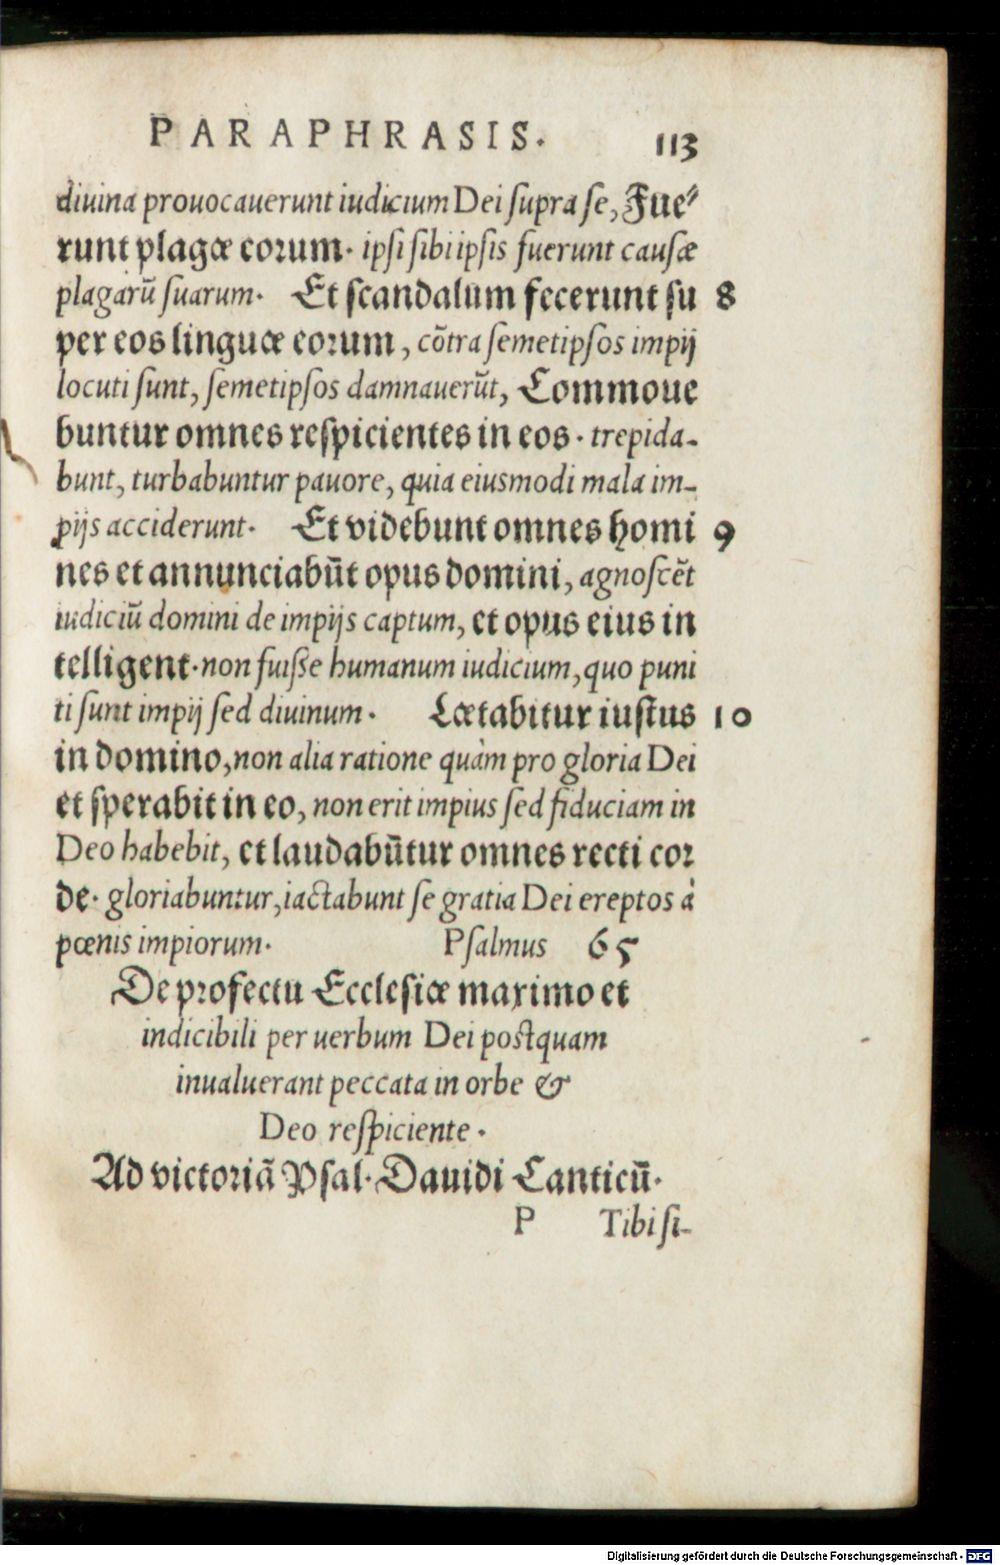 PARAPHRASIS. 113
diuina prouocauerunt iudicium Dei supra se, Fue⸗
runt plagæ eorum. ipsi sibi ipsis fuerunt causæ
plagarū suarum. Et scandalum fecerunt su 8
per eos linguæ eorum, cōtra semetipsos impij
locuti sunt, semetipsos damnauerūt, Commoue
buntur omnes respicientes in eos. trepida-
bunt, turbabuntur pauore, quia eiusmodi mala im-
pijs acciderunt. Et videbunt omnes homi 9
nes et annunciabūt opus domini, agnoscēt
iudiciū domini de impijs captum, et opus eius in
telligent. non fuisse humanum iudicium, quo puni
ti sunt impij sed diuinum. Lætabitur iustus 10
in domino, non alia ratione quàm pro gloria Dei
et sperabit in eo, non erit impius sed fiduciam in
Deo habebit, et laudabūtur omnes recti cor
de. gloriabuntur, iactabunt se gratia Dei ereptos à
pœnis impiorum. Psalmus 65
De profectu Ecclesiæ maximo et
indicibili per uerbum Dei postquam
inualuerant peccata in orbe &
Deo respiciente.
Ad victoriā Psal. Dauidi Canticū.
P Tibi si-
Digitalisierung gefördert durch die Deutsche Forschungsgemeinschaft - DFG